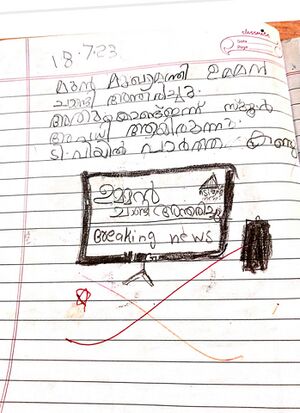 classmate
Date
Page
18.7.23
മുൻ മുഖ്യമന്ത്രി ഉമ്മൻ
ചാണ്ടി അന്തരിച്ചു.
അതിനുകൊണ്ട് ഇന്ന് സ്കൂൾ
അവധി ആയിരുന്നു.
ടി.വിയിൽ വാർത്ത കണ്ടു
ഉമ്മൻ
ചാണ്ടി അന്തരിച്ചു
Breaking news